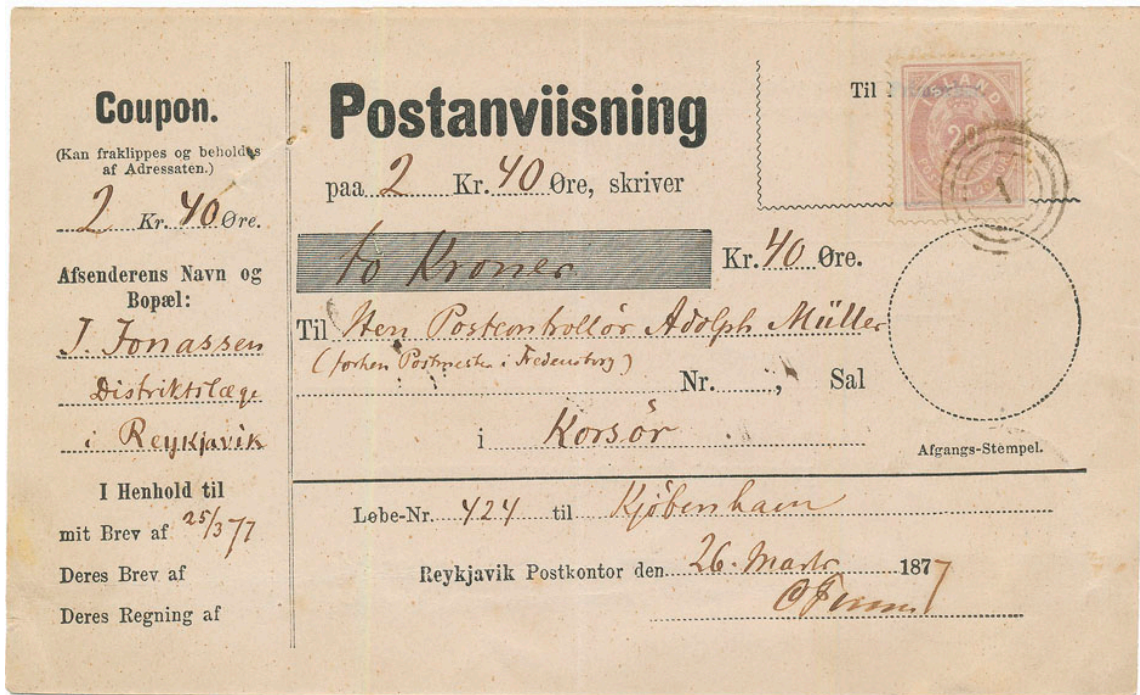 Coupon.
(Kan fraklippes og beholdes
af Adressaten.)
2 Kr. 40 Øre.
Afsenderens Navn og
Bopæl:
J. Jonassen
Distriktslæge
i Reykjavik
I Henhold til
mit Brev af 25/3 77
Deres Brev af
Deres Regning af
Postanviisning
paa 2 Kr. 40 Øre, skriver
to Kroner Kr. 40 Øre.
Til Herr Postcontrollør Adolph Müller
(forhen Postmester i Fredensborg)
Nr. , Sal
i Korsør
Løbe-Nr. 424 til Kjöbenhavn
Reykjavik Postkontor den 26. Marts 1877
Til
ISLAND
20
1
Afgangs-Stempel.